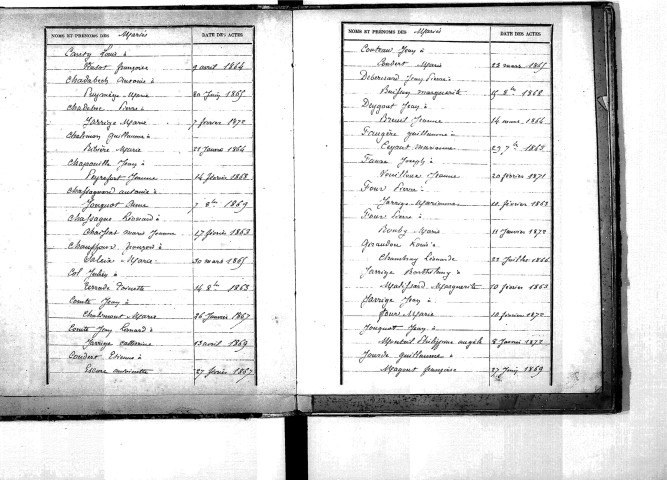 NOMS ET PRÉNOMS DES Mariés DATE DES ACTES
Carety Louis à
Hubot françoise 9 avril 1864
Chadabech Antoine à
Marie 20 Juin 1865
Chadebec Pierre à
Farrige Marie 7 février 1872
Chabanon guillaume à
Ribière Marie 21 Janvier 1864
Chapouille Jean à
Peyrefort Jeanne 14 février 1868
Chassagnard antoine à
Jouquot Anne 7 8bre 1869
Chassagne Léonard à
Chaissat Marie Jeanne 17 février 1863
Chauffour françois à
Valeix Marie 30 mars 1865
Col Julien à
14 8bre 1863
Comte Jean à
Chalimont Marie 26 Janvier 1867
Comte Jean Léonard à
Farrige catherine 13 avril 1869
Couderc Etienne à
Escure antoinette 27 février 1867
NOMS ET PRÉNOMS DES Mariés DATE DES ACTES
Couteau Jean à
Coudert Marie 23 mars 1865
Jean Pierre à
Buisson marguerite 15 8bre 1868
Deyjout Jean à
Breuil Jeanne 14 mars 1864
Faugère guillaume à
Marianne 23 7bre 1863
Faure Joseph à
Jeanne 20 février 1871
Four Pierre à
Farrige Marianne 11 février 1863
Four Pierre à
Bouby Marie 11 Janvier 1872
Geraudon Louis à
Chambray Léonarde 22 Juillet 1866
Jarrige Barthélemy à
Matissard Marguerite 10 février 1863
Jarrige Jean à
Four Marie 10 février 1872
Jouquot Jean à
Monteil Philippine angèle 8 Janvier 1872
Jourde guillaume à
Magent françoise 27 Juin 1869